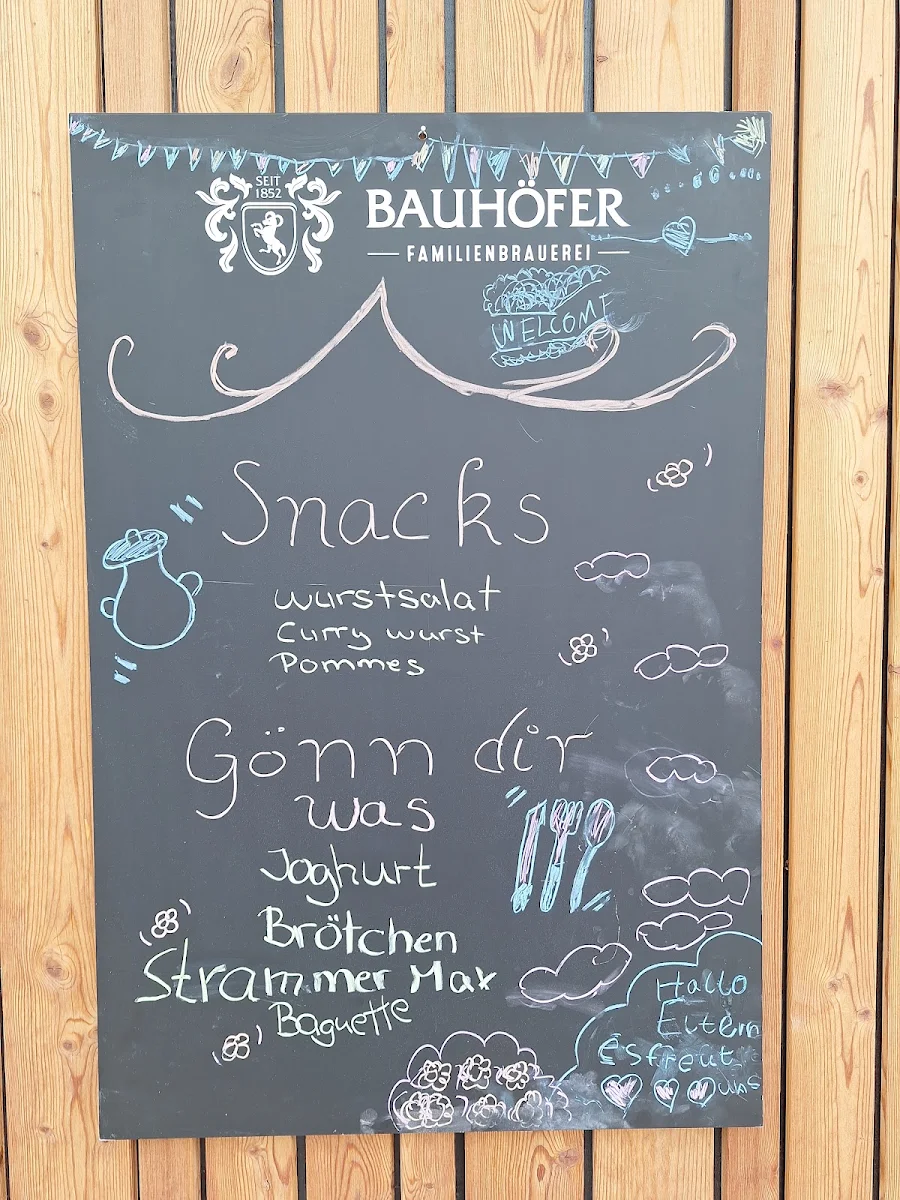 SEIT
1852
BAUHÖFER
FAMILIENBRAUEREI
WELCOME
Snacks
wurstsalat
Curry wurst
Pommes
Gönn dir
was
Joghurt
Brötchen
Strammer Max
Baguette
Hallo
Eltern
es freut
uns